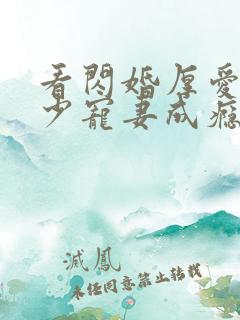 看閃婚厚愛
少寵妻成癮
滅鳳
未任同意禁止转载